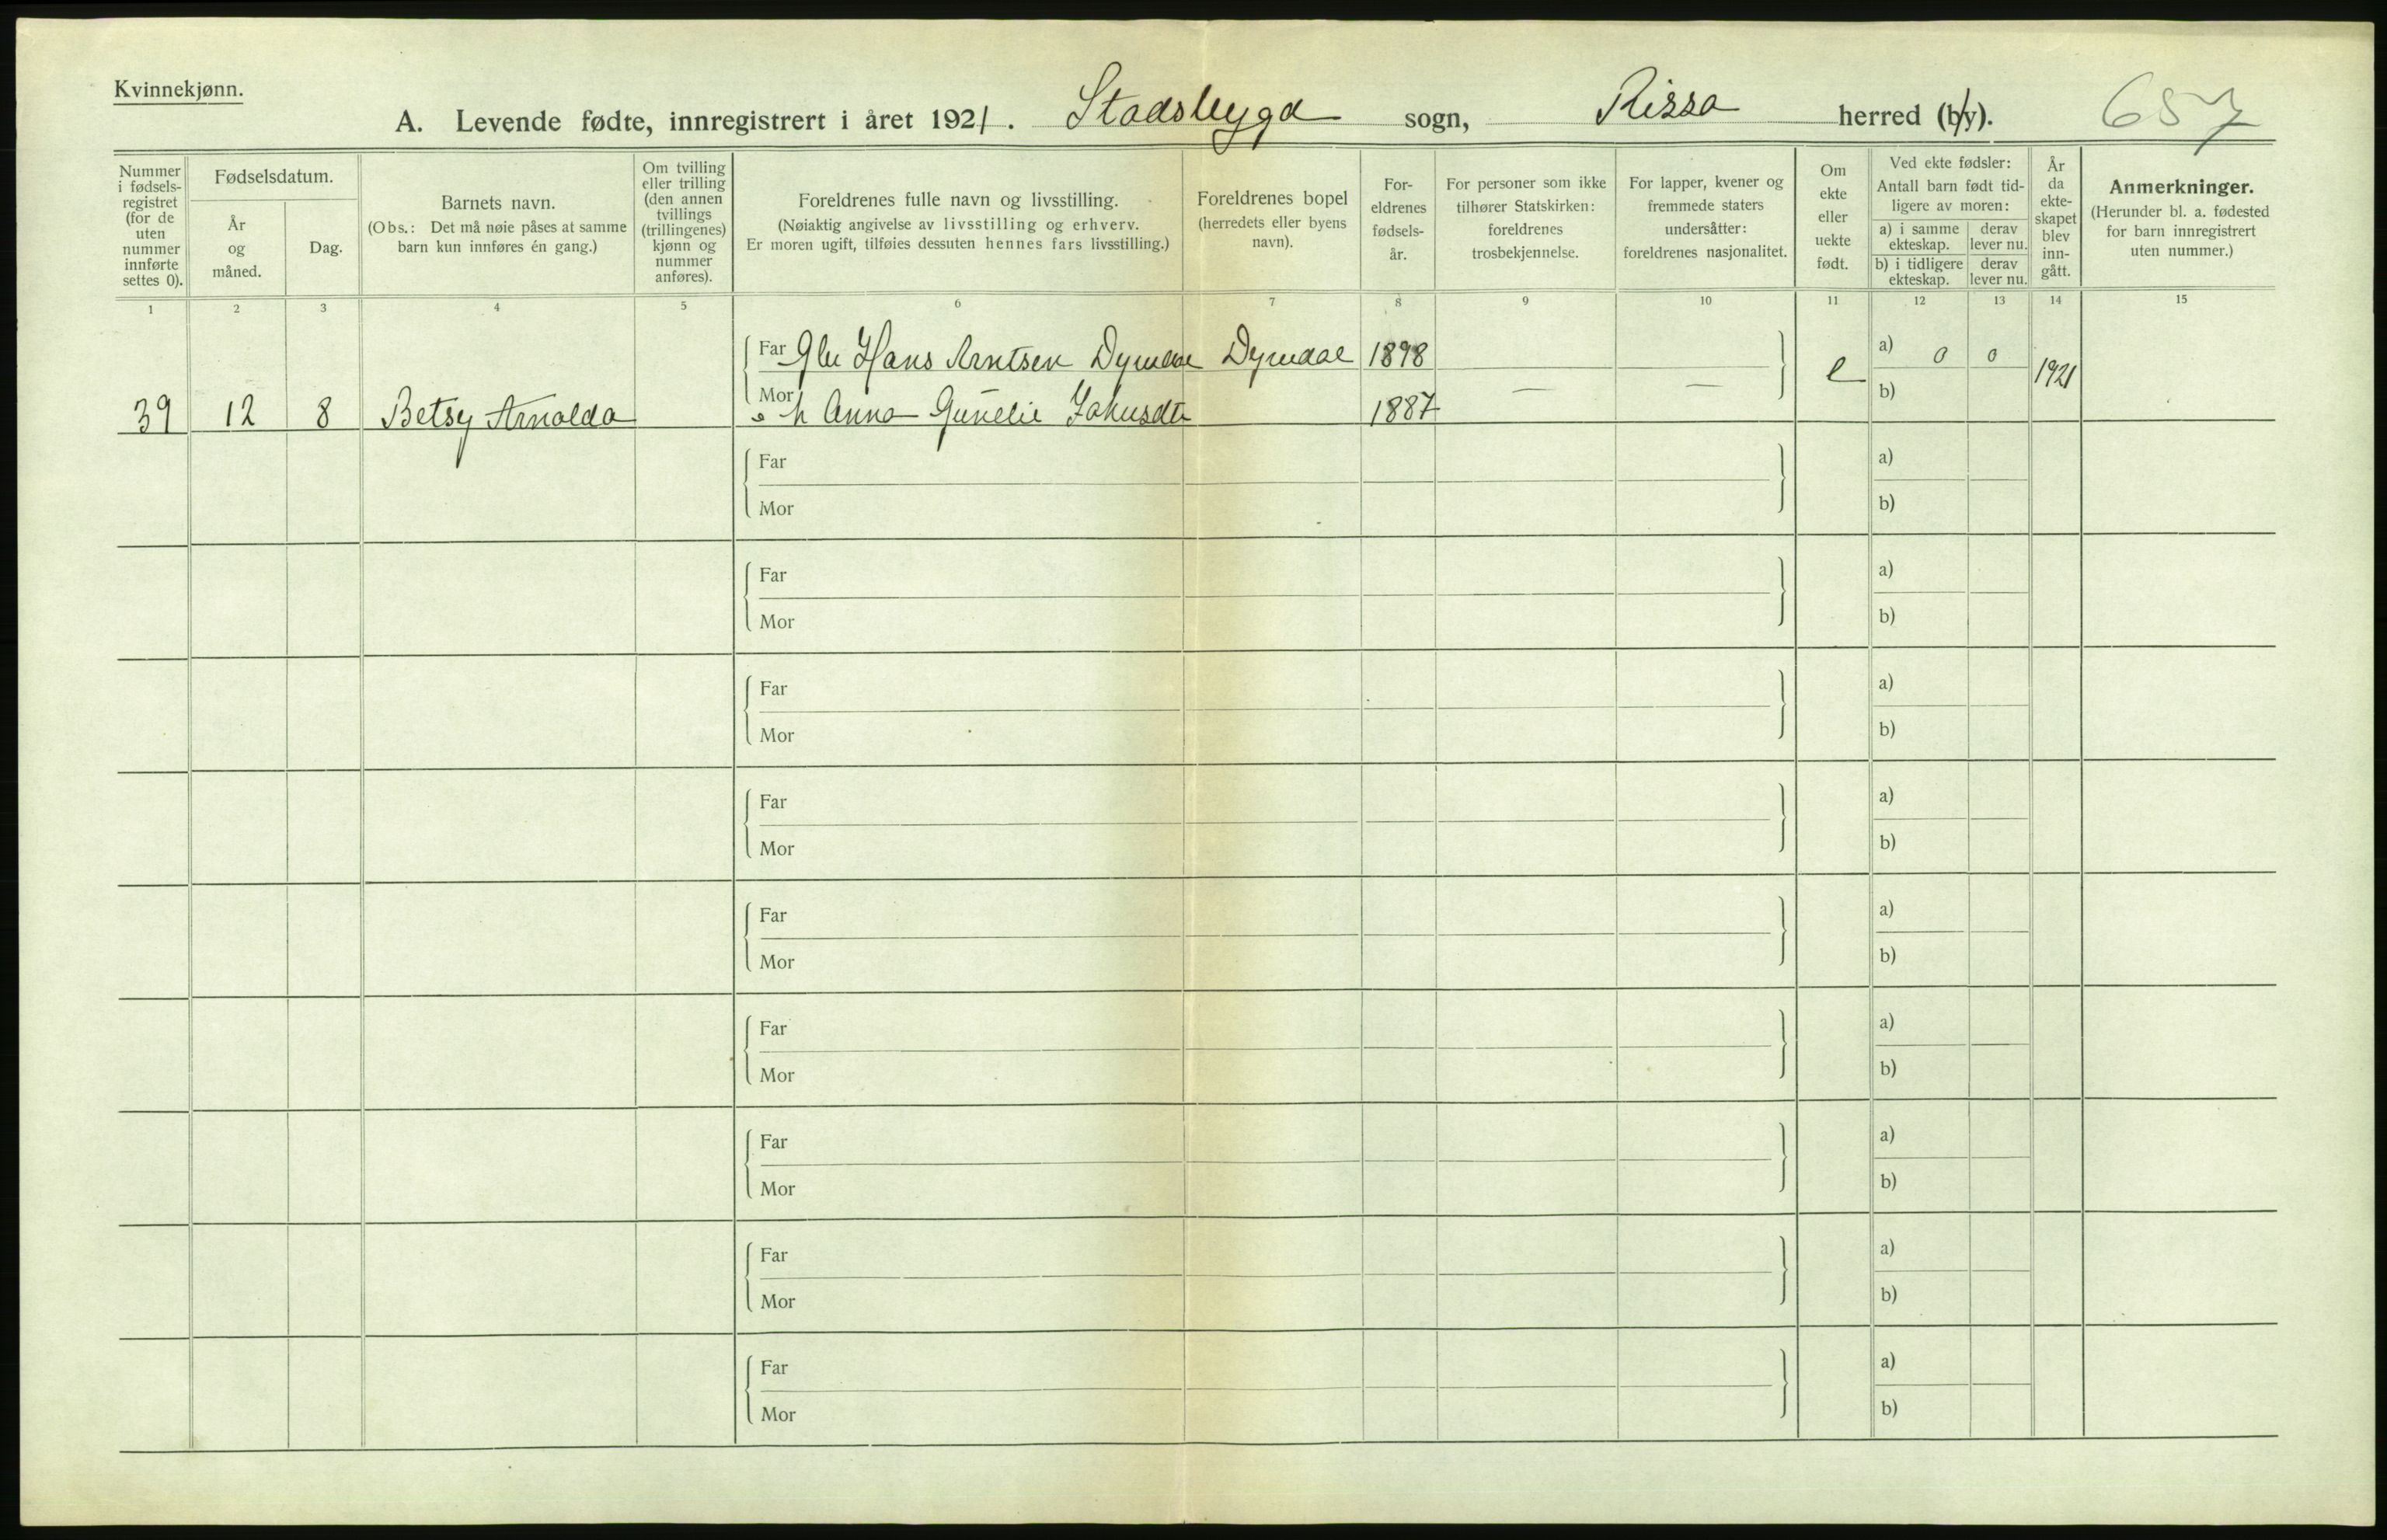 Kvinnekjønn.
A. Levende fødte, innregistrert i året 1921. Stadsbygd sogn, Rissa herred (by). 657
Nummer i fødsels-registret (for de uten nummer innførte settes 0).
Fødselsdatum.
År og måned.
Dag.
Barnets navn.
(Obs.: Det må nøie påses at samme barn kun innføres én gang.)
Om tvilling eller trilling (den annen tvillings (trillingenes) kjønn og nummer anføres).
Foreldrenes fulle navn og livsstilling.
(Nøiaktig angivelse av livsstilling og erhverv.
Er moren ugift, tilføies dessuten hennes fars livsstilling.)
Foreldrenes bopel
(herredets eller byens navn).
For-eldrenes fødsels-år.
For personer som ikke tilhører Statskirken: foreldrenes trosbekjennelse.
For lapper, kvener og fremmede staters undersåtter: foreldrenes nasjonalitet.
Om ekte eller uekte født.
Ved ekte fødsler:
Antall barn født tid-ligere av moren:
a) i samme ekteskap.
derav lever nu.
b) i tidligere ekteskap.
derav lever nu.
År da ekte-skapet blev inn-gått.
Anmerkninger.
(Herunder bl. a. fødested for barn innregistrert uten nummer.)
1 2 3 4 5 6 7 8 9 10 11 12 13 14 15
Far Hans Arntsen Dyrndal Dyrndal 1898 a) 0 0
39 12 8 Betsy Arnolda Mor h Anna 1887 — — e b) 1921
Far a)
Mor b)
Far a)
Mor b)
Far a)
Mor b)
Far a)
Mor b)
Far a)
Mor b)
Far a)
Mor b)
Far a)
Mor b)
Far a)
Mor b)
Far a)
Mor b)